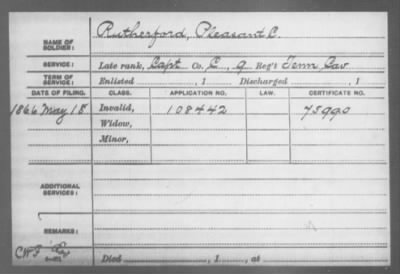 NAME OF SOLDIER: Rutherford, Pleasant C.
SERVICE: Late rank, Capt Co. C, 9 Reg't Tenn Cav
TERM OF SERVICE: Enlisted , 1 Discharged , 1
DATE OF FILING. CLASS. APPLICATION NO. LAW. CERTIFICATE NO.
1866 May 18 Invalid, 108442 75990
Widow,
Minor,
ADDITIONAL SERVICES:
REMARKS:
CWF
Died , 1 , at